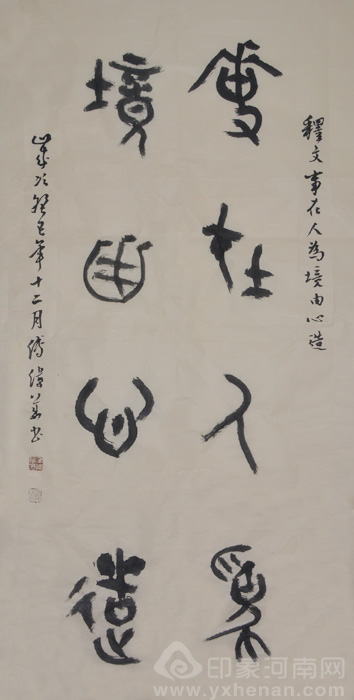 釋文事在人為境由心造
事在人為
境由心造
歲次癸巳年十二月書
印象河南网
www.yxhenan.com